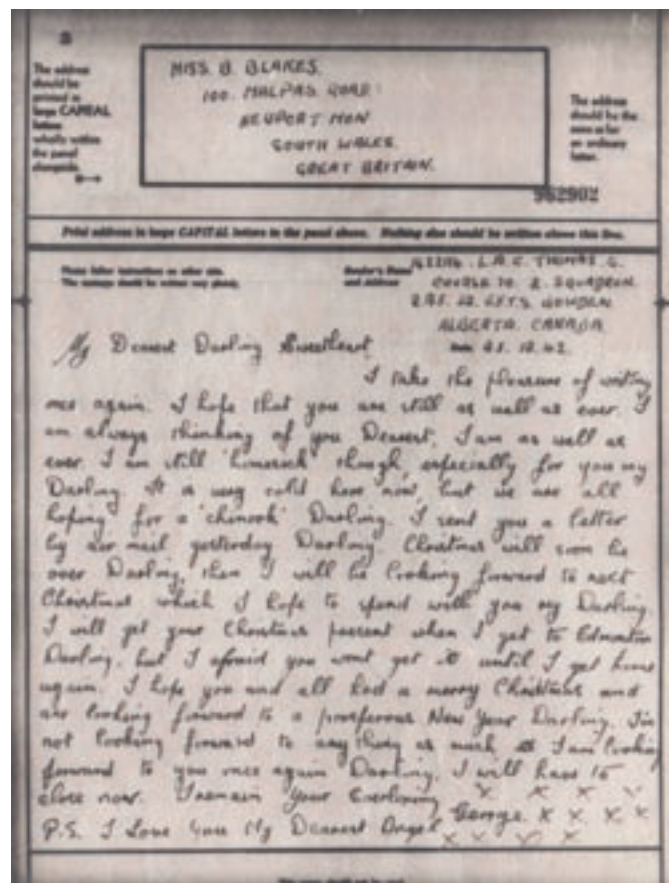 The address
should be
printed in
large CAPITAL
letters
wholly within
the panel
alongside.
MISS. B. BLAKES.
100. MALPAS ROAD.
NEWPORT MON
SOUTH WALES.
GREAT BRITAIN.
The address
should be the
same as for
an ordinary
letter.
962902
Print address in large CAPITAL letters in the panel above. Nothing else should be written above this line.
Please follow instructions on other side.
The message should be written very plainly.
Sender's Name
and Address
L.A.C. THOMAS. G.
COURSE 2. SQUADRON
BOWDEN
ALBERTA. CANADA
Date 12.42
My Dearest Darling Sweetheart
I take the pleasure of writing
once again. I hope that you are still as well as ever. I
am always thinking of you Dearest, I am as well as
ever. I am still 'homesick' though, especially for you my
Darling. It is very cold here now, but we are all
hoping for a 'chinook' Darling. I sent you a letter
by air mail yesterday Darling. Christmas will soon be
over Darling, then I will be looking forward to next
Christmas which I hope to spend with you my Darling.
I will get your Christmas present when I get to Edmonton
Darling, but I afraid you wont get it until I get home
again. I hope you and all had a merry Christmas and
are looking forward to a prosperous New Year Darling. I'm
not looking forward to any thing as much as I am looking
forward to you once again Darling. I will have to
close now. I remain Your Everloving X X X X
George. X X X X
P.S. I Love You My Dearest Angel X X X X